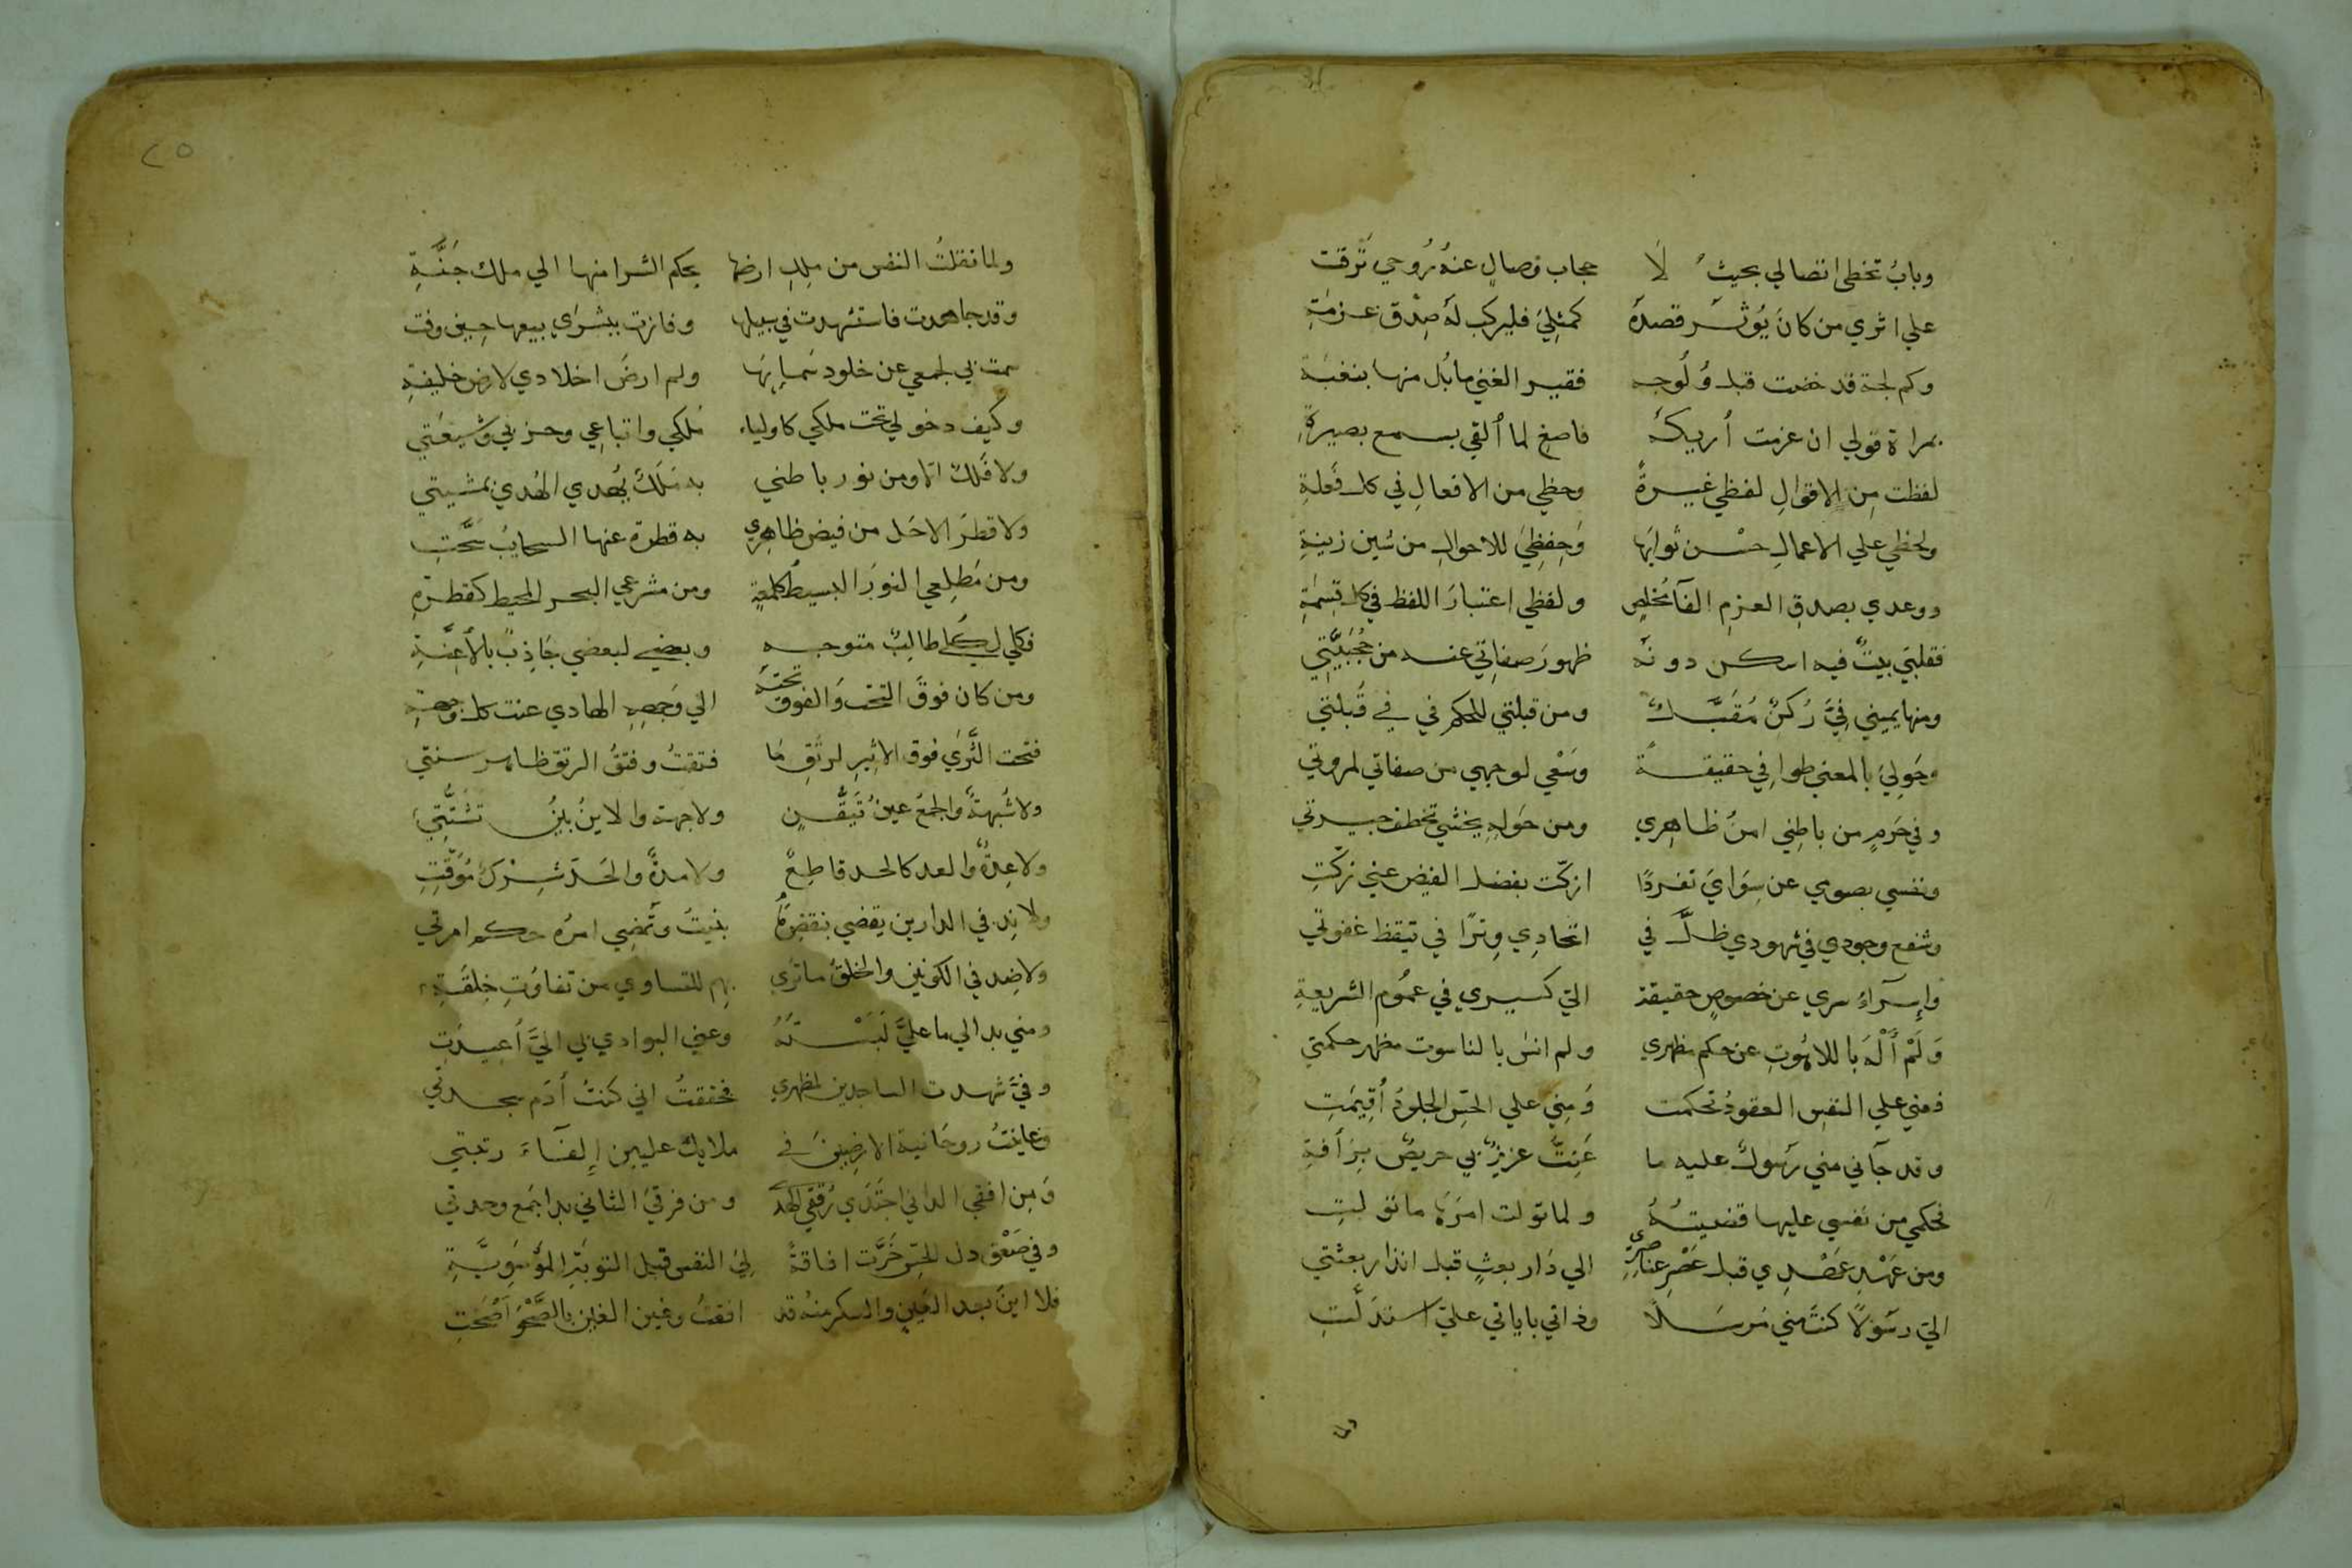 وبابُ تخطى اتصالي بحيثُ لَا حجاب وصالٍ عنهُ رُوحي تَرَقت
علي اثري من كانَ يُوثر قصدَهُ كمثلِيَ فليركب لهُ صِدْق عزمَةِ
وكم لجة قد خضت قبل وُلُوجه فقير الغني ما بُل منها بنغبَة
بمراة قولي ان عزمت أريكهُ فاصغِ لما أُلقي بسمع بصيرةِ
لفظت مِن الاقوالِ لفظي غيرةً وحظي من الافعالِ في كل فَعلةِ
ولحظي علي الاعمالِ حسْن ثوابِها وَحِفظِيَ للاحوالِ من شين زينةِ
ووعدي بصدقِ العزمِ الفآ مُخلصٍ ولفظي اعتبارَ اللفظ في كل قِسمَةِ
فقلبيَ بيتٌ فيه اسكن دونهُ ظهورَ صفاتي عنه من حُجُبيَّتِي
ومنها يميني فِيَّ رُكنٌ مُقَبَّلٌ ومن قبلتي للحكم في في قُبلتي
وحَولِيَ بالمعني طوافي حقيقةً وسَعْي لوجهي من صفاتي لمروتي
وفي حَرمٍ من باطِني امنُ ظاهِري ومن حَولهِ يخشي تخطف جيرتي
ونفسي بصومي عن سِوَايَ تفردًا ازكّت بفضل الفيض عني زكّتِ
وشفع وجودي في شهودي ظلَّ في اتحادِي وِترًا في تيقظ غفوتي
وإسرآءُ سري عن خصوصِ حقيقة اليّ كسيري في عمُوم الشريعةِ
وَلَمْ أَلْهَ باللاهُوتِ عن حكم مظهري ولم انسَ بالناسوت مظهر حكمتي
فعني علي النفسِ العقودُ تحكمت وَمِني علي الحسِّ الحدودُ أُقِيمَتِ
وقد جآني مني رَسولٌ عليه ما عَنِتُّ عزيزٌ بي حريصٌ برَأفةِ
فحكمي من نفسي عليها قضيتهُ ولما تولت امرَهَا ما تولتِ
ومن عَهْدِ عَهْدِي قبل عَصْرِ عناصرِي الي دَار بعثٍ قبل انذار بعثتي
اليّ رسَولًا كنتُ مني مُرسَلًا وذاتي باياتي عليّ استدلَّتِ
٢٥
ولما نقلتُ النفس من مِلكِ ارضها بحكم الشرا منها الي ملك جَنَّةِ
وقد جاهدت فاستشهدت في سبيلها وفازت ببشرَاي بيعها حِين وفت
سمت بي لجمعي عن خلود سَمايها ولم ارضَ اخلادي لارض خليفةِ
وكيف دخولي تحت ملكي كاولياء مُلكي واتباعِي وحزبي وشيعَتي
ولا فَلكٌ الا ومن نور باطني به مَلَكٌ يُهدي الهُدي بمشيتي
ولا قطرَ الا حَل من فيض ظاهري به قطرة عنها السحايبُ سَحَّتِ
ومن مَطلِعي النورُ البسيطُ كلمعةٍ ومن مشرعي البحر المحيط كقطرةِ
فكلي لكلي طالِبٌ متوجه وبعضي لبعضي جَاذِبٌ بالأعِنَّةِ
ومن كان فوقَ التحت وَالفوق تحتهُ الي وَجههِ الهادي عنت كل وجهةِ
فتحت الثَّرَي فوق الاثيرِ لرتقِ مَا فتقتُ وفتقُ الرتق ظاهر سنتي
ولا شُبهةٌ والجمعُ عينُ تَيَقُّنٍ ولا جهة والاينُ بينُ تشتُّتِي
ولا عِدةٌ والعد كالحد قاطِعٌ ولا مدةٌ والحَد شِرْكُ مُوَقّتِ
ولا نِد في الدارين يقضي بنقضِ مَا بنيتُ وتُمضِي امرُه حكم امرتي
ولا ضِد في الكونين والخلقُ ما تري بهم للتساوي من تفاوُتِ خِلقَةِ
ومني بدا لي ما عليَّ لَبَسْتهُ وعني البوادي بي اليَّ أُعِيدَتِ
وفيَّ شهدت الساجدين لمظهري فحققتُ اني كنتُ أدَم سجدتي
وعاينتُ روحَانية الارضِينَ في ملايك عليين إِلفآء رتبتي
وَمِن افقي الداني اجتَدَي رُفقي الهدَي ومن فرقيَ الثاني بدا جَمع وحدتي
وفي صَعْق دك الحِسّ خَرَّت افاقةً لِيَ النفس قبل التوبَةِ المُوسَوِيَّةِ
فلا اينَ بعد العَينِ والسكر منهُ قد افقتُ وغين الغين بالصَّحْوِ أَصْحَتِ